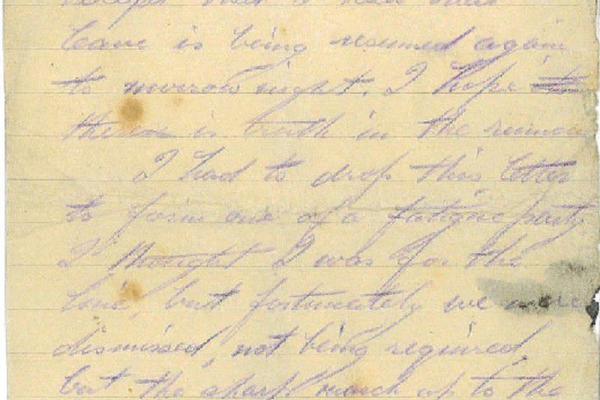 except that I hear that
leave is being resumed again
to morrow night. I hope
there is truth in the rumour
I had to drop this letter
to form one of a fatigue party
I thought I was for the
line, but fortunately we were
dismissed, not being required,
but the sharp march up to the